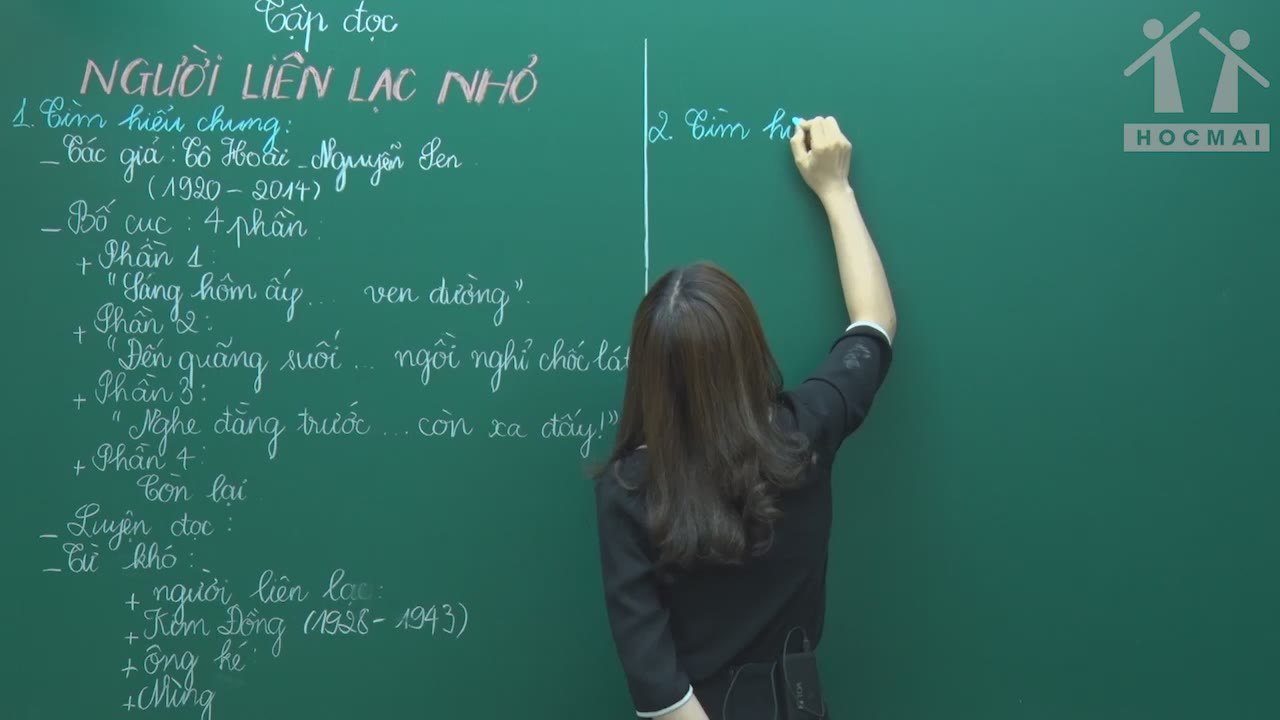 Tập đọc
NGƯỜI LIÊN LẠC NHỎ
1. Tìm hiểu chung:
_ Tác giả: Tô Hoài _ Nguyễn Sen
(1920 - 2014)
_ Bố cục : 4 phần :
+ Phần 1 :
"Sáng hôm ấy... ven đường".
+ Phần 2 :
"Đến quãng suối ... ngồi nghỉ chốc lát
+ Phần 3 :
"Nghe đằng trước ... còn xa đấy!"
+ Phần 4 :
Còn lại
_ Luyện đọc :
_ Từ khó :
+ người liên lạc :
+ Kim Đồng (1928 - 1943)
+ ông ké :
+ Nùng
2. Tìm hi
HOCMAI